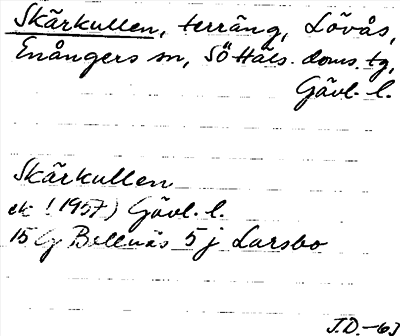 Skärkullen, terräng, Lövås,
Enångers sn, SöHäls. doms. tg,
Gävl. l.
Skärkullen
ek (1957) Gävl. l.
15 G Bellnäs 5 j Larsbo
J.D. -63